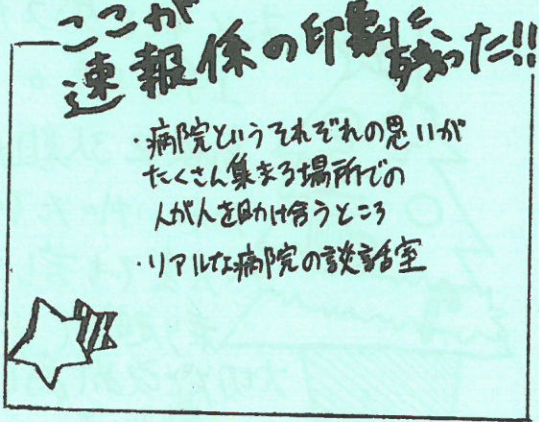 ここが
速報係の印象に残った!!
・病院というそれぞれの思いが
たくさん集まる場所での
人が人を助け合うところ
・リアルな病院の談話室